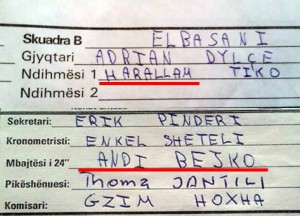 Skuadra B ELBASANI
Gjyqtari ADRIAN DYLCE
Ndihmësi 1 HARALLAM TIKO
Ndihmësi 2
Sekretari: ERIK PINDERI
Kronometristi: ENKEL SHETELI
Mbajtësi i 24" ANDI BEJKO
Pikëshënuesi: Thoma JANTILI
Komisari: GZIM HOXHA